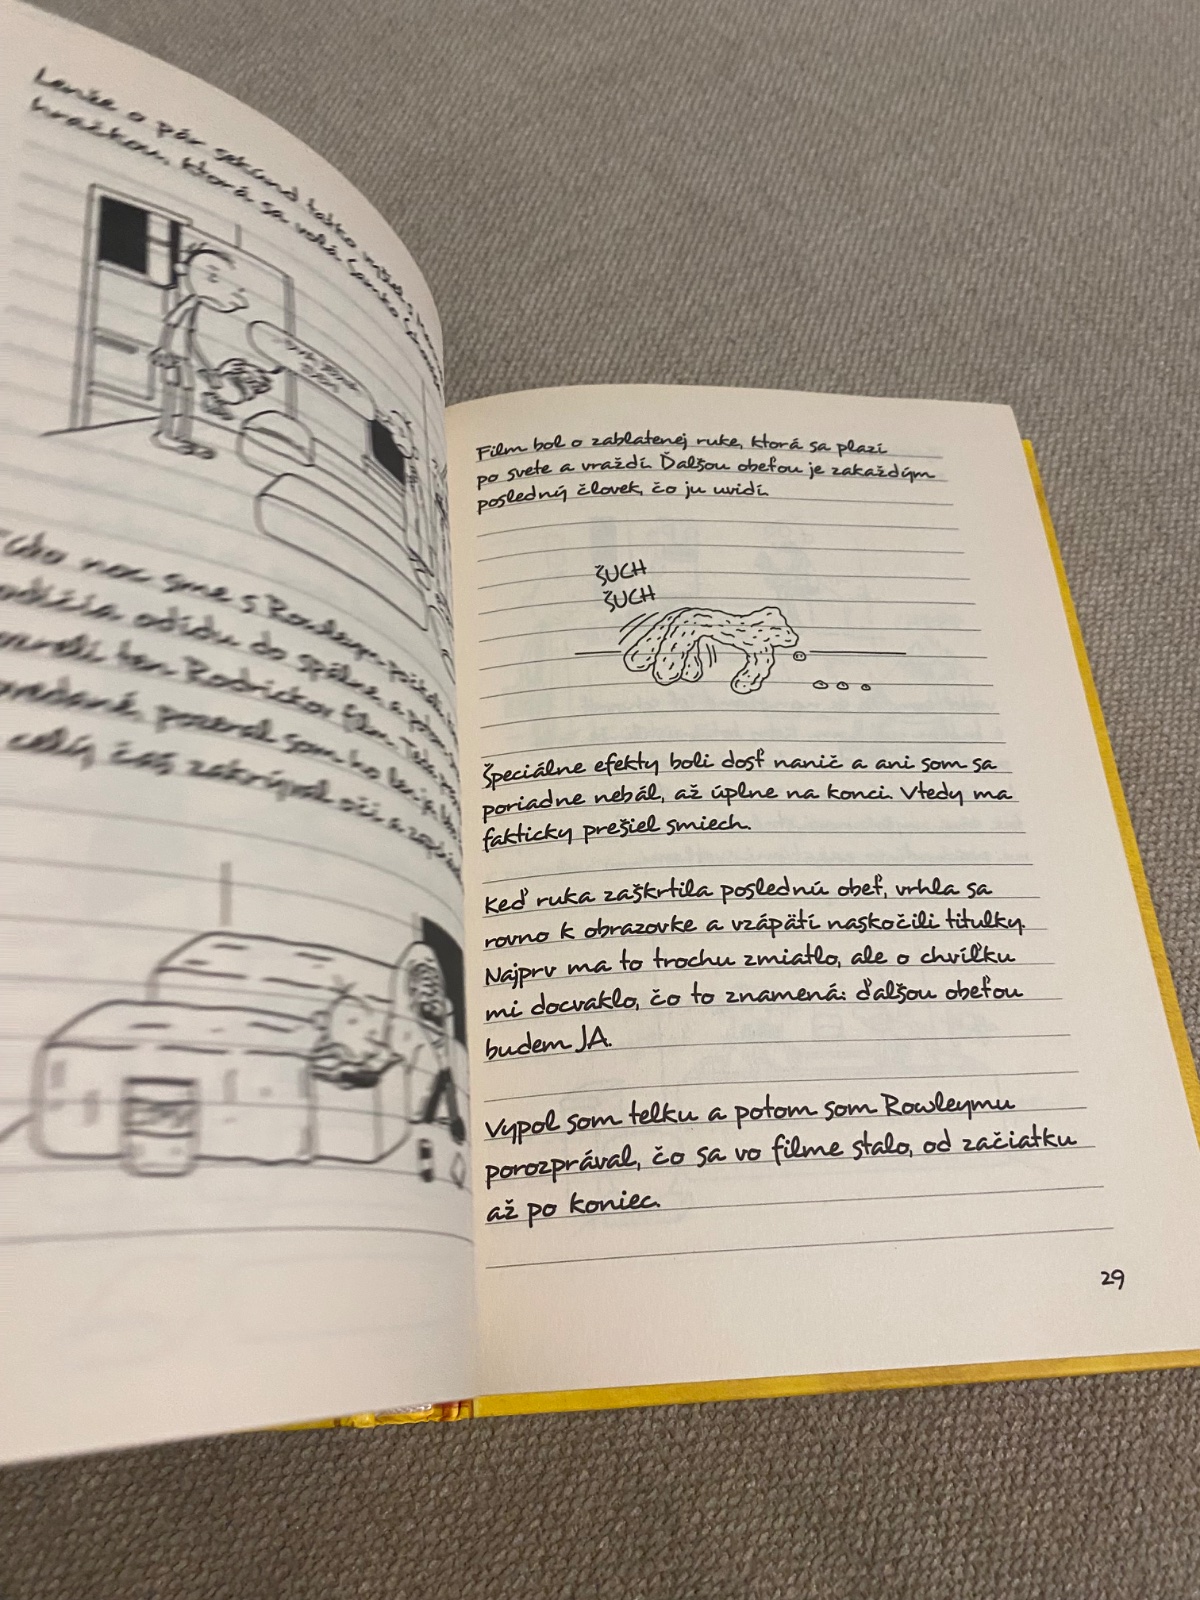 Lenže o pár sekúnd takto
hračkou, ktorá sa volá
noc sme s Rowleym
odídu do spálne, a potom
ten Rodrickov film.
pozeral som ho len
celý čas zakrýval oči a
Film bol o zablatenej ruke, ktorá sa plazí
po svete a vraždí. Ďalšou obeťou je zakaždým
posledný človek, čo ju uvidí.
ŠUCH
ŠUCH
Špeciálne efekty boli dosť nanič a ani som sa
poriadne nebál, až úplne na konci. Vtedy ma
fakticky prešiel smiech.
Keď ruka zaškrtila poslednú obeť, vrhla sa
rovno k obrazovke a vzápätí naskočili titulky.
Najprv ma to trochu zmiatlo, ale o chvíľku
mi docvaklo, čo to znamená: ďalšou obeťou
budem JA.
Vypol som telku a potom som Rowleymu
porozprával, čo sa vo filme stalo, od začiatku
až po koniec.
29